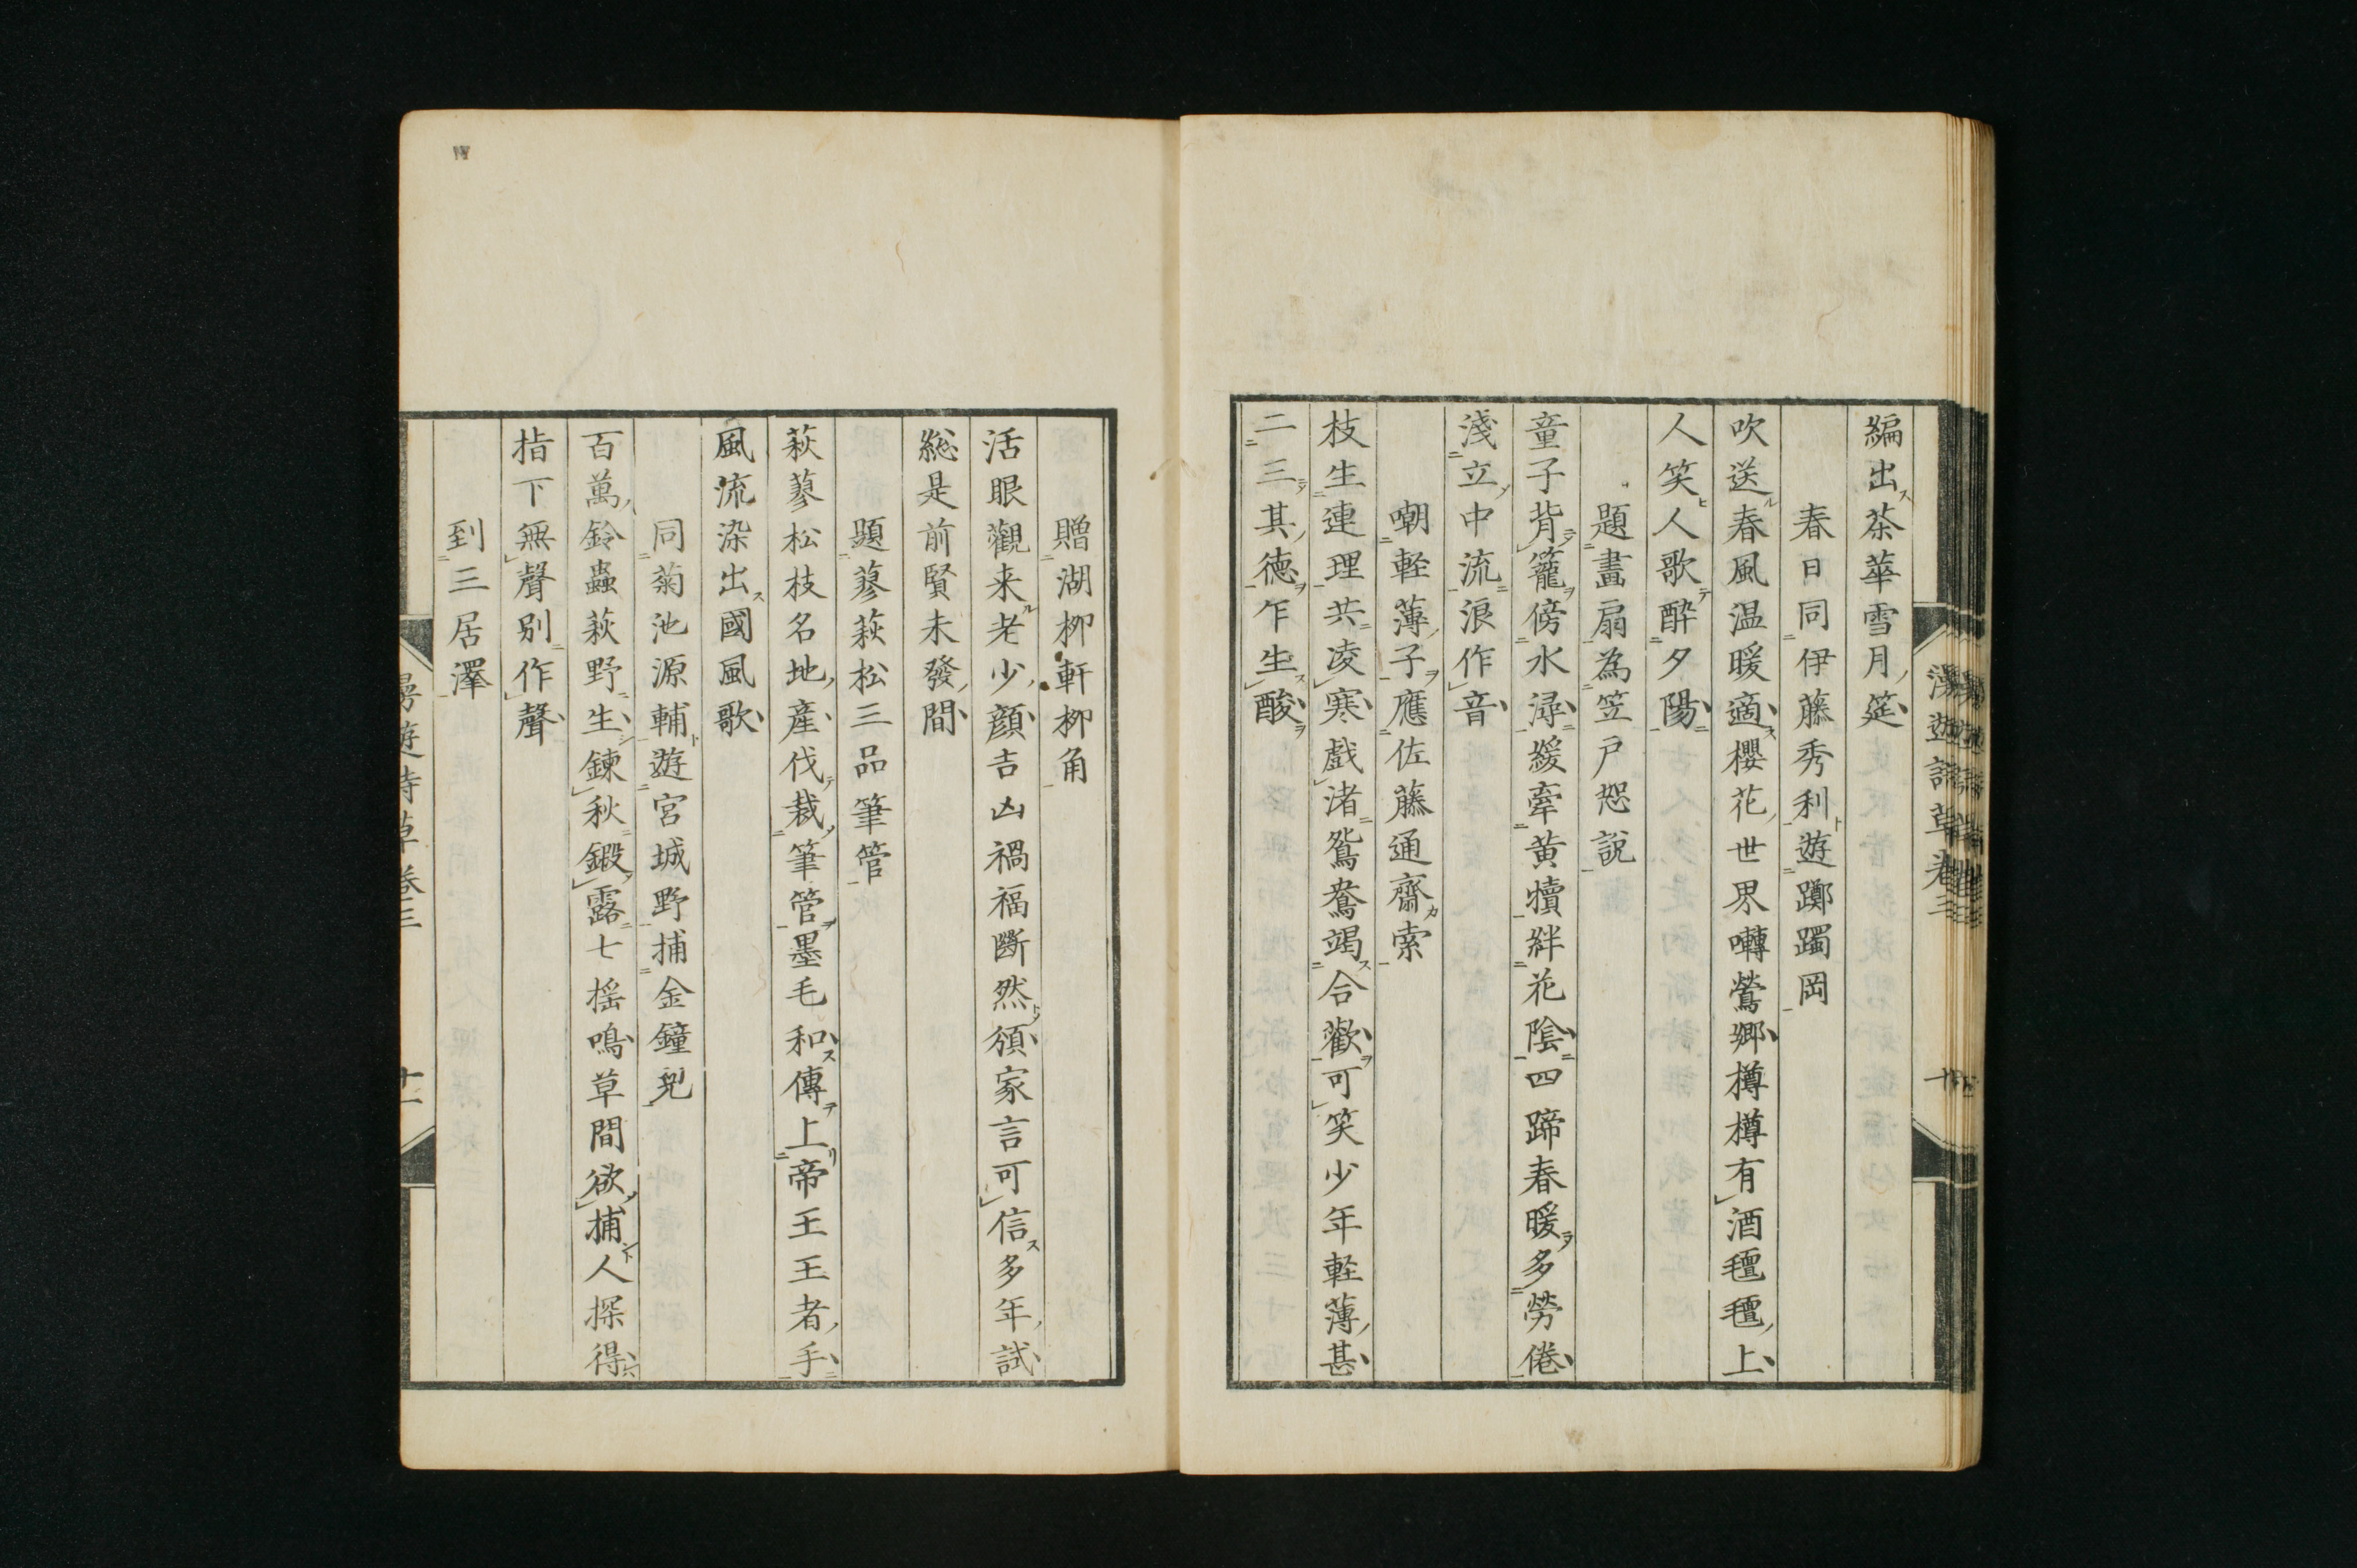 編出茶華雪月筵
春日同伊藤秀利遊躑躅岡
吹送春風温暖適櫻花世界囀鶯郷樽樽有酒氈氈上
人笑人歌醉夕陽
題畫扇為笠戸恕說
童子背籠傍水潯緩牽黄犢絆花陰四蹄春暖多勞倦
淺立中流浪作音
嘲軽薄子應佐藤通齋索
枝生連理共凌寒戲渚鴛鴦竭合歡可笑少年軽薄甚
二三其徳乍生酸
贈湖柳軒柳角
活眼觀来老少顔吉凶禍福斷然頒家言可信多年試
総是前賢未發間
題蓼萩松三品筆管
萩蓼松枝名地產伐裁筆管墨毛和傳上帝王王者手
風流染出國風歌
同菊池源輔遊宮城野捕金鐘兒
百萬鈴蟲萩野生鍊秋鍛露七揺鳴草間欲捕人探得
指下無聲別作聲
到三居澤
漫遊詩草巻三 十一